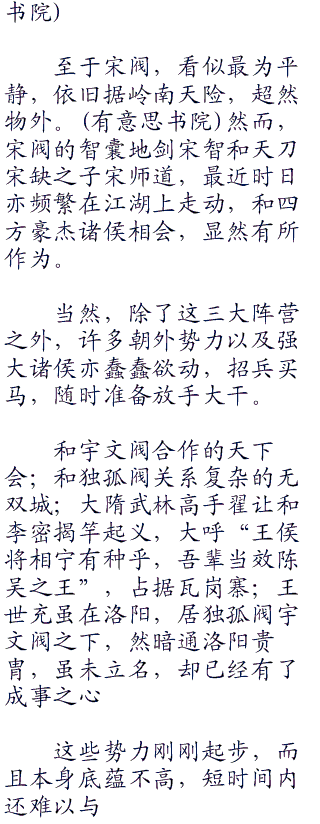 书院）
至于宋阀，看似最为平
静，依旧据岭南天险，超然
物外。(有意思书院)然而，
宋阀的智囊地剑宋智和天刀
宋缺之子宋师道，最近时日
亦频繁在江湖上走动，和四
方豪杰诸侯相会，显然有所
作为。
当然，除了这三大阵营
之外，许多朝外势力以及强
大诸侯亦蠢蠢欲动，招兵买
马，随时准备放手大干。
和宇文阀合作的天下
会；和独孤阀关系复杂的无
双城；大隋武林高手翟让和
李密揭竿起义，大呼“王侯
将相宁有种乎，吾辈当效陈
吴之王”，占据瓦岗寨；王
世充虽在洛阳，居独孤阀宇
文阀之下，然暗通洛阳贵
胄，虽未立名，却已经有了
成事之心
这些势力刚刚起步，而
且本身底蕴不高，短时间内
还难以与